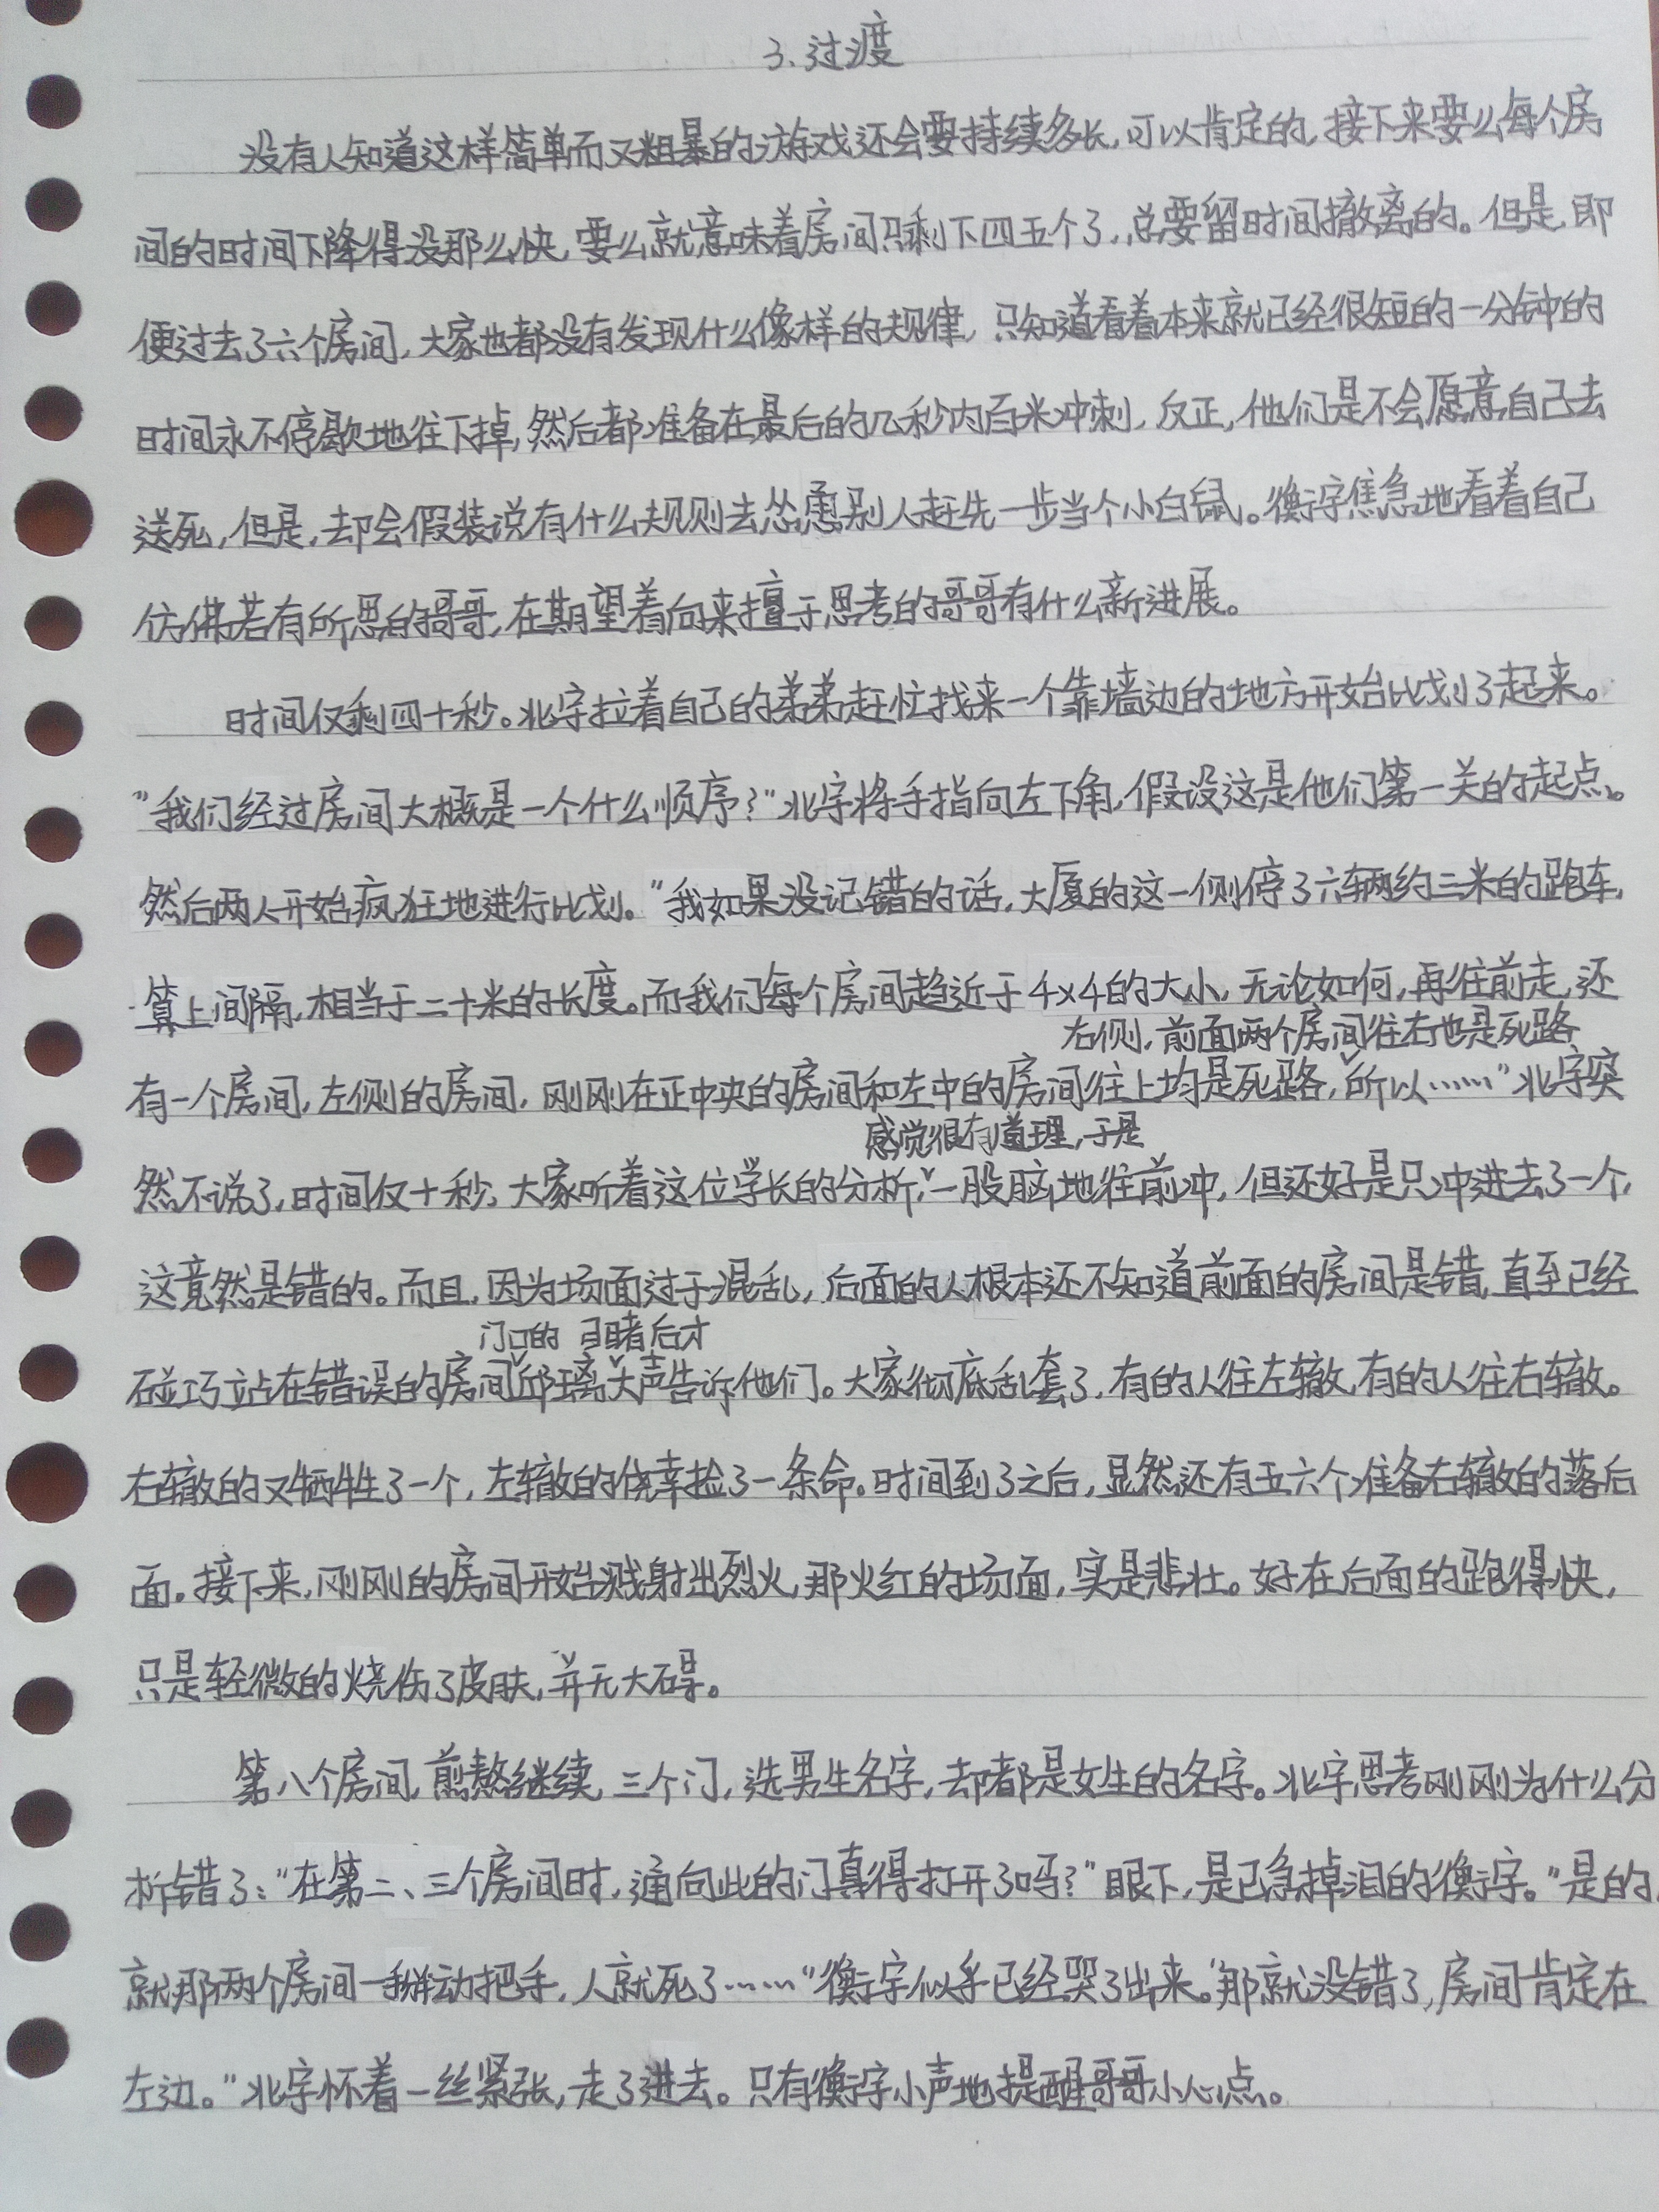 3.过渡
没有人知道这样简单而又粗暴的游戏还会要持续多长,可以肯定的,接下来要么每个房
间的时间下降得没那么快,要么就意味着房间只剩下四五个了,总要留时间撤离的。但是,即
便过去了六个房间,大家也都没有发现什么像样的规律,只知道看着本来就已经很短的一分钟的
时间永不停歇地往下掉,然后都准备在最后的几秒内百米冲刺,反正,他们是不会愿意自己去
送死,但是,却会假装说有什么规则去怂恿别人赶先一步当个小白鼠。衡宇焦急地看着自己
仿佛若有所思的哥哥,在期望着向来擅于思考的哥哥有什么新进展。
时间仅剩四十秒。北宇拉着自己的弟弟赶忙找来一个靠墙边的地方开始比划了起来。
"我们经过房间大概是一个什么顺序?"北宇将手指向左下角,假设这是他们第一关的起点。
然后两人开始疯狂地进行比划。"我如果没记错的话,大厦的这一侧停了六辆约三米的跑车,
算上间隔,相当于二十米的长度。而我们每个房间趋近于4×4的大小,无论如何,再往前走,还
右侧,前面两个房间往右也是死路
有一个房间,左侧的房间,刚刚在正中央的房间和左中的房间往上均是死路,所以……"北宇突
感觉很有道理,于是
然不说了,时间仅十秒,大家听着这位学长的分析,一股脑地往前冲,但还好是只冲进去了一个,
这竟然是错的。而且,因为场面过于混乱,后面的人根本还不知道前面的房间是错,直至已经
门口的 目睹后才
碰巧站在错误的房间邱璃大声告诉他们。大家彻底乱套了,有的人往左辙,有的人往右辙。
右辙的又牺牲了一个,左辙的侥幸捡了一条命。时间到了之后,显然还有五六个准备右辙的落后
面。接下来,刚刚的房间开始溅射出烈火,那火红的场面,实是悲壮。好在后面的跑得快,
只是轻微的烧伤了皮肤,并无大碍。
第八个房间,煎熬继续,三个门,选男生名字,却都是女生的名字。北宇思考刚刚为什么分
析错了:"在第二、三个房间时,通向此的门真得打开了吗?"眼下,是已急掉泪的衡宇。"是的,
就那两个房间一掰动把手,人就死了……"衡宇似乎已经哭了出来。"那就没错了,房间肯定在
左边。"北宇怀着一丝紧张,走了进去。只有衡宇小声地提醒哥哥小心点。